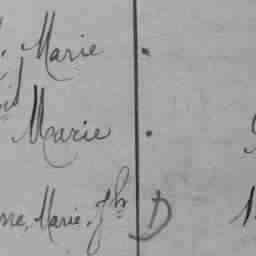 Marie .
Marie .
rre, Marie, Jh D